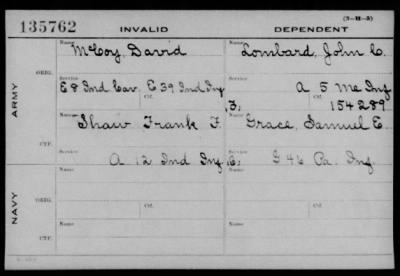 135762 INVALID DEPENDENT (3-H-5)
ARMY
ORIG.
Name McCoy, David Name Lombard, John C.
Service Service
E 8 Ind Cav. E 39 Ind Inf Ctf. A 5 Me Inf
B; Ctf. 154289
CTF.
Name Shaw Frank F. Name Grace, Samuel E.
Service Service
A 12 Ind Inf, C; G 46 Pa. Inf.
NAVY
ORIG.
Name Name
Ctf. Ctf.
CTF.
Name Name